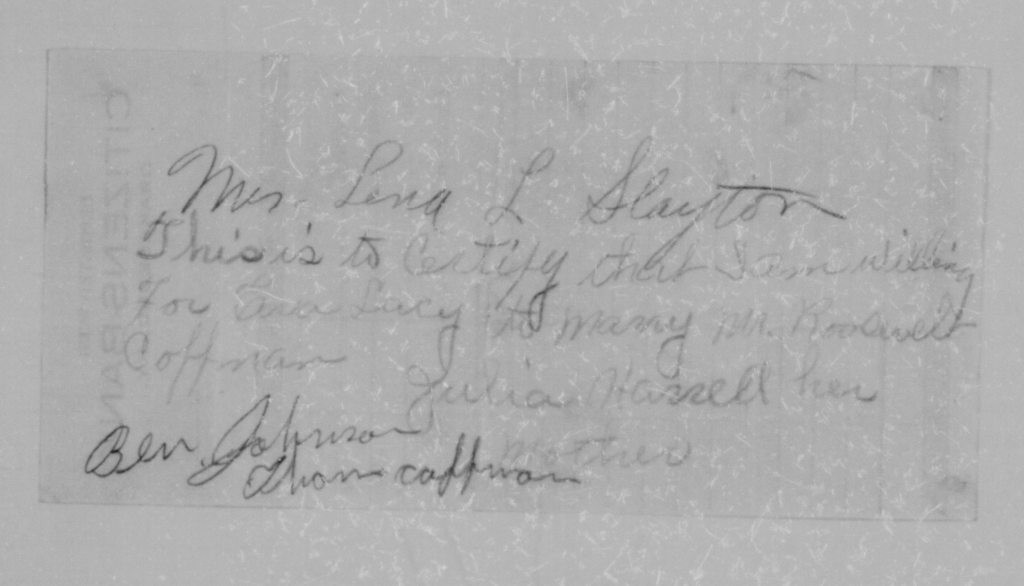 Mrs. Lena L Slayton
This is to Certify that I am willing
For Lucy to marry Mr. Roosevelt
Coffman Julia Hassell her
mother
Ben Johnson
Thom coffman
CITIZENS BAN